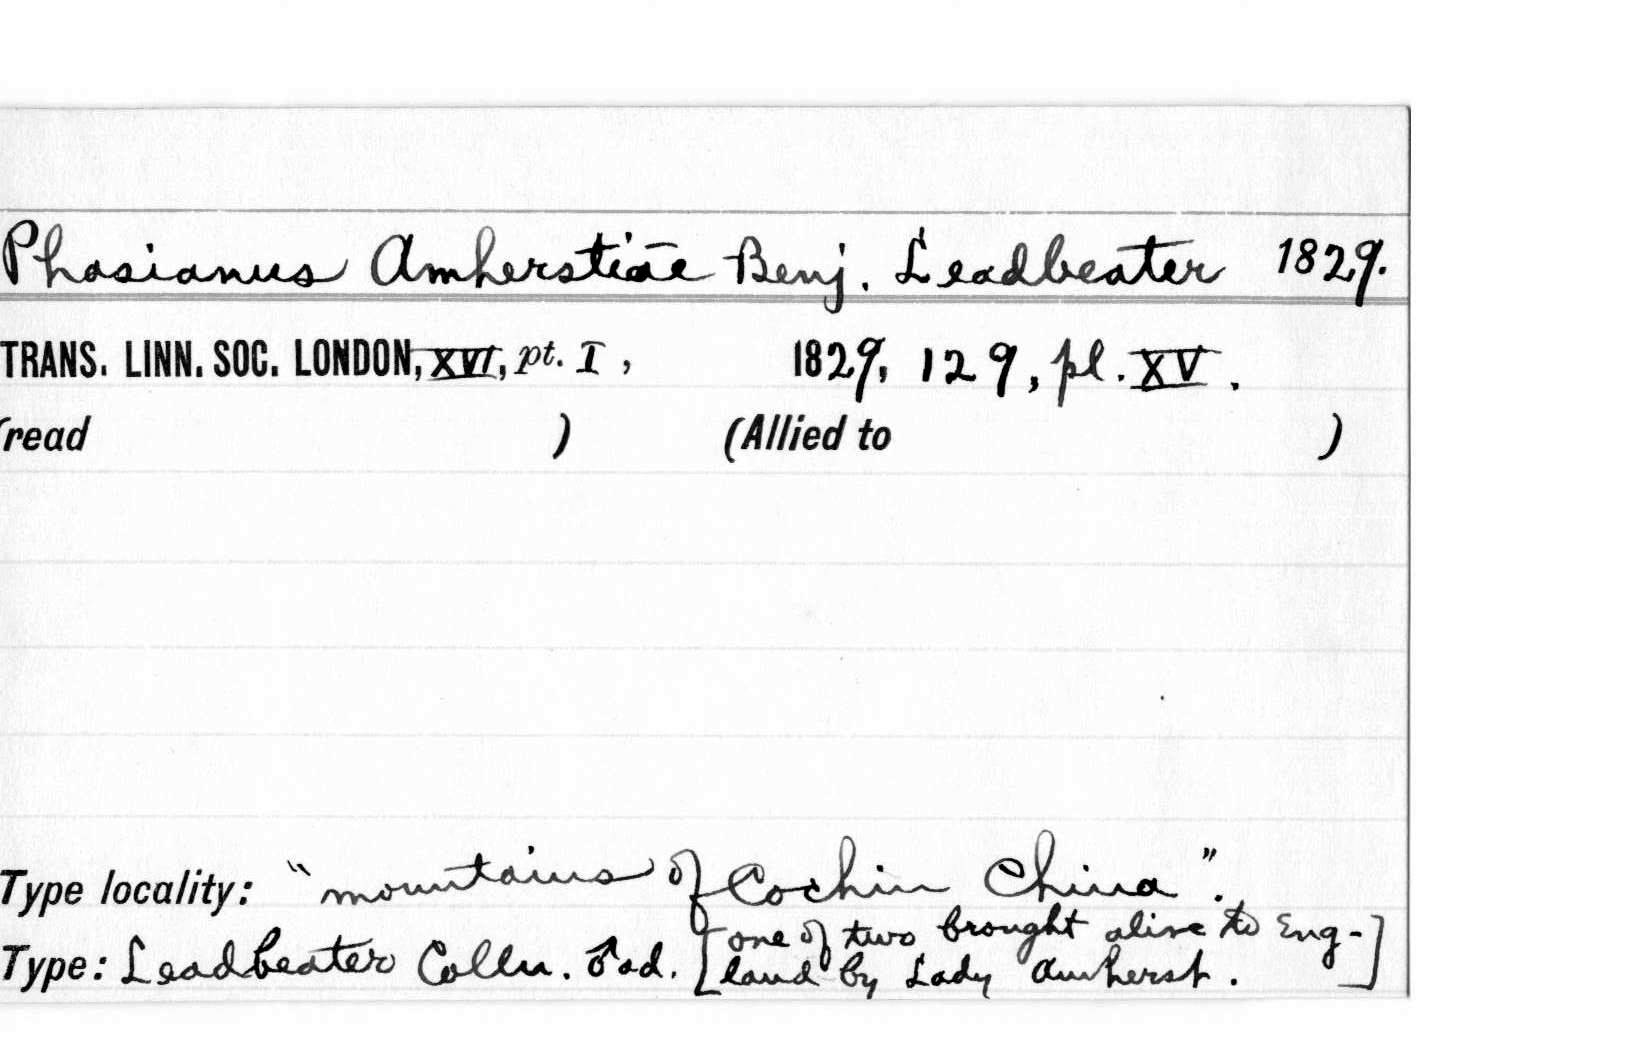 Phasianus Amherstiae Benj. Leadbeater 1829.
TRANS. LINN. SOC. LONDON, XVI, pt. I, 1829, 129, pl. XV.
(read ) (Allied to )
Type locality: "mountains of Cochin China".
Type: Leadbeater Colln. ♂ ad. [one of two brought alive to Eng-
land by Lady Amherst. ]